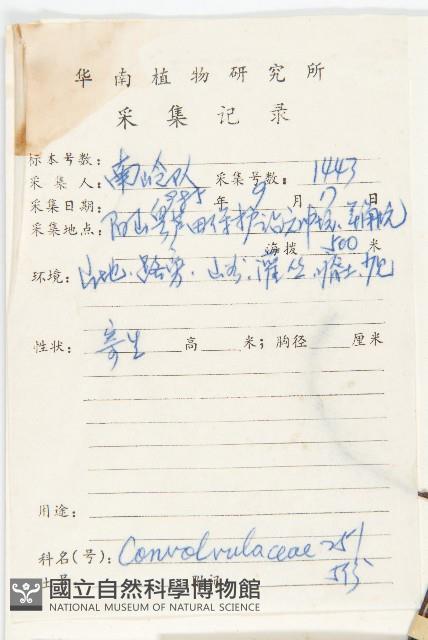 华南植物研究所
采集记录
标本号数:
采集人: 南岭队 采集号数: 1443
采集日期: 1985 年 9 月 17 日
采集地点: 阳山 保护站
海拨 500 米
环境: 山地、路旁、山谷、灌丛、
性状: 寄生 高 米; 胸径 厘米
用途:
科名(号): Convolvulaceae 251
國立自然科學博物館
NATIONAL MUSEUM OF NATURAL SCIENCE